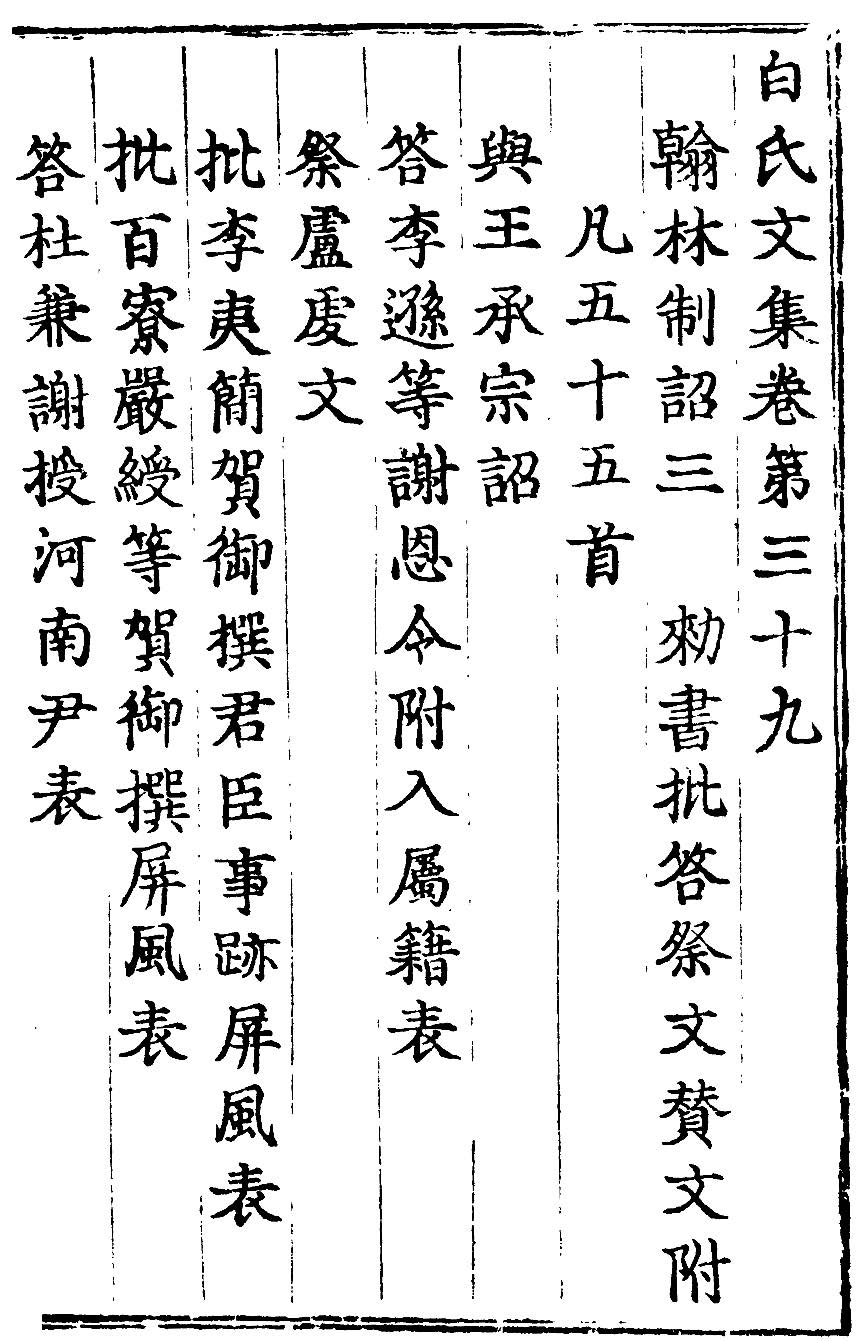 白氏文集卷第三十九
翰林制詔三　勑書批答祭文賛文附
凡五十五首
與王承宗詔
答李遜等謝恩令附入屬籍表
祭盧虔文
批李夷簡賀御撰君臣事跡屏風表
批百寮嚴綬等賀御撰屏風表
答杜兼謝授河南尹表